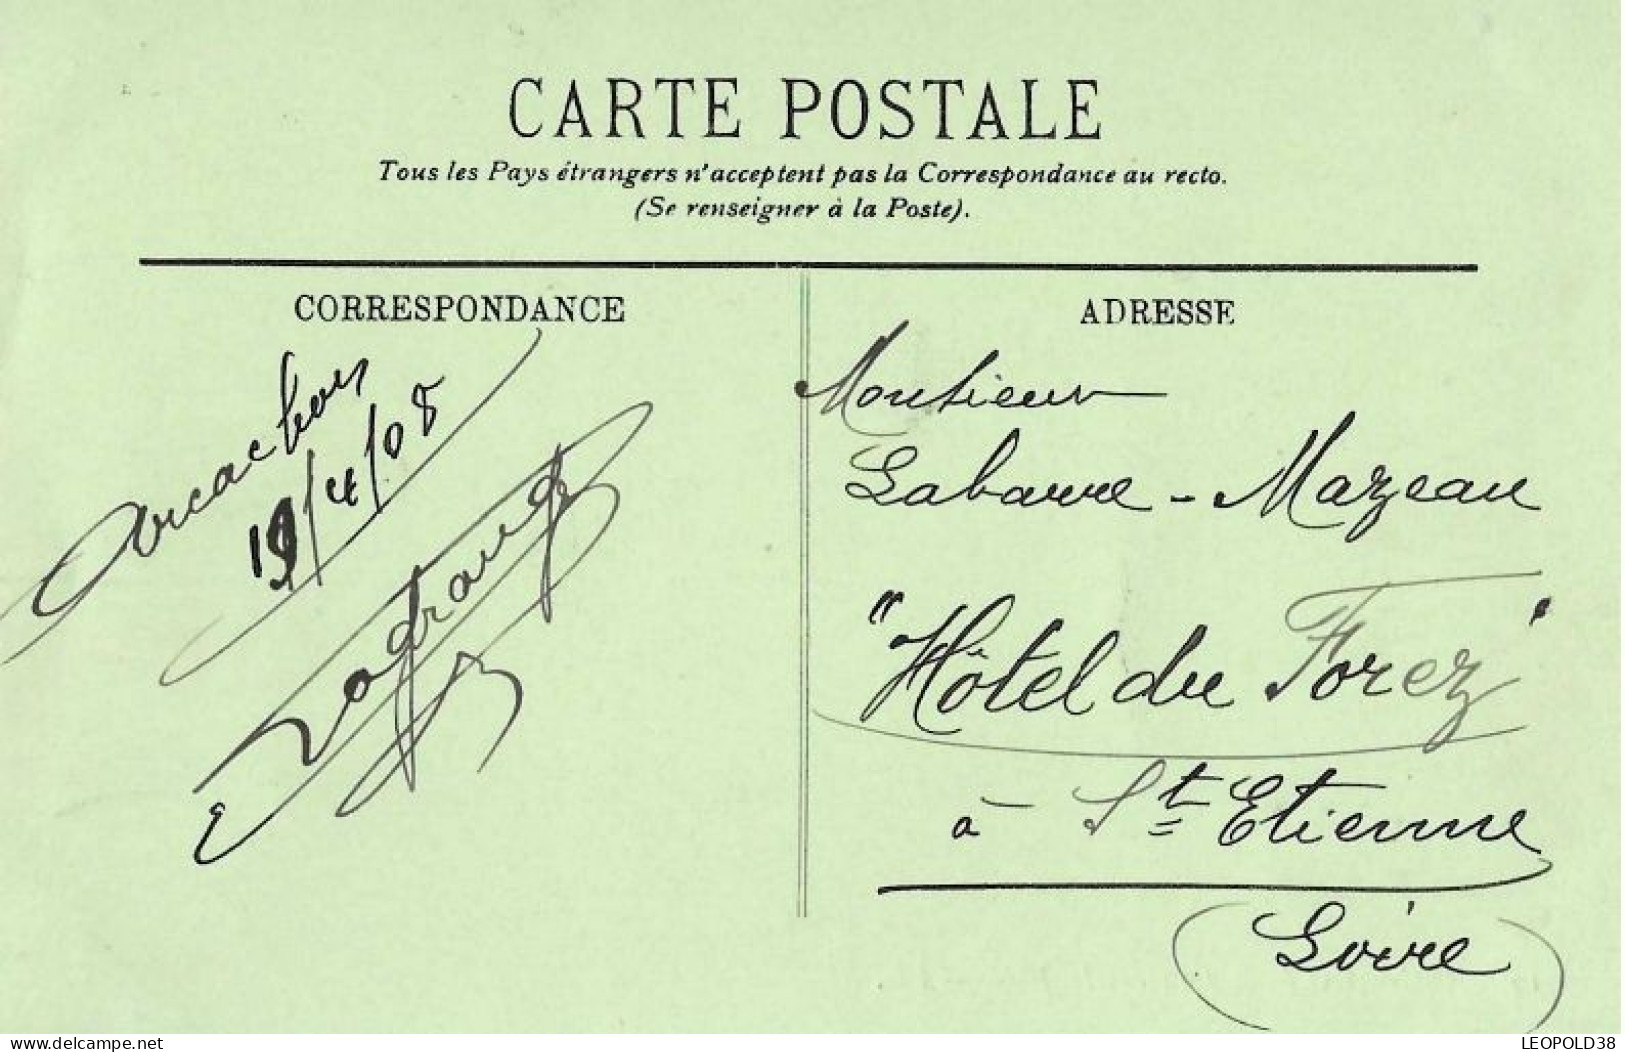 CARTE POSTALE
Tous les Pays étrangers n'acceptent pas la Correspondance au recto.
(Se renseigner à la Poste).
CORRESPONDANCE
Arcachon
19/4/08
Lagrange
ADRESSE
Monsieur
Labarre - Mazeau
"Hôtel du Forez"
à St Etienne
(Loire)
www.delcampe.net
LEOPOLD38